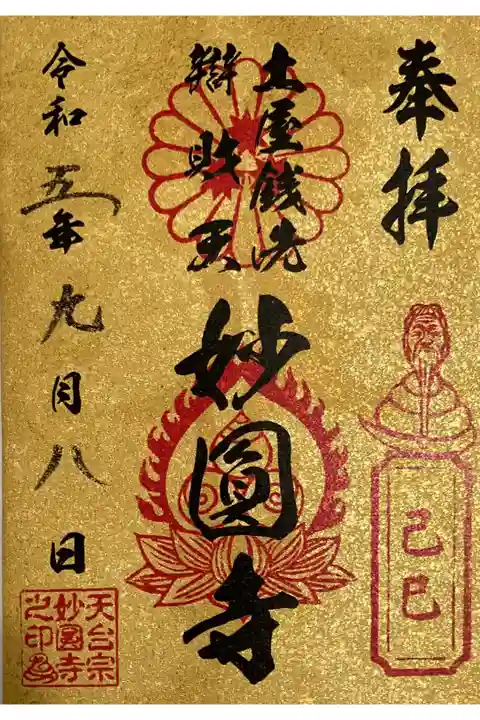 奉拝
己巳
土屋銭洗
辯財天
妙圓寺
令和五年九月八日
天台宗
妙圓寺
之印